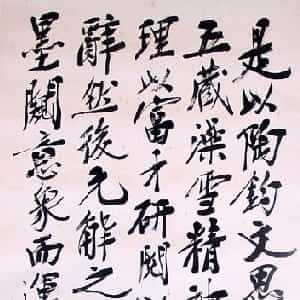 是以陶鈞文思
五藏澡雪精神
理以富才研閱
辭然後元解之
墨闚意象而運